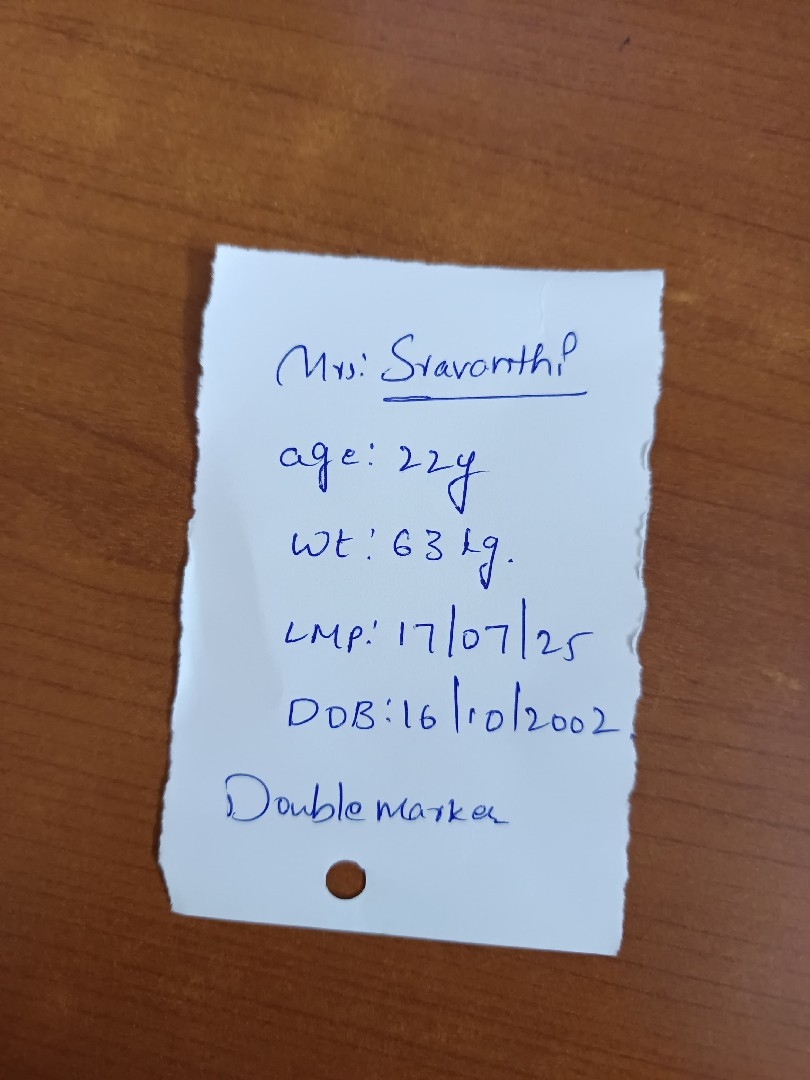 Mrs: Sravanthi
age: 22y
Wt: 63 kg.
LMP: 17/07/25
DOB: 16/10/2002
Double marker